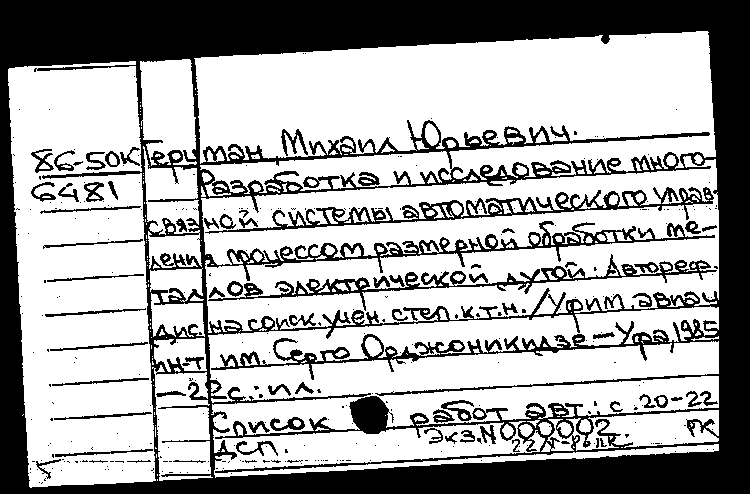 86-50К
6481
Герцман, Михаил Юрьевич.
Разработка и исследование много-
связной системы автоматического управ-
ления процессом размерной обработки ме-
таллов электрической дугой. Автореф.
дис. на соиск. учен. степ. к.т.н. / Уфим. авиац
ин-т им. Серго Орджоникидзе — Уфа, 1985
— 22с.: ил.
Список работ авт.: с. 20-22
Экз. N000002.
ДСП.
РК